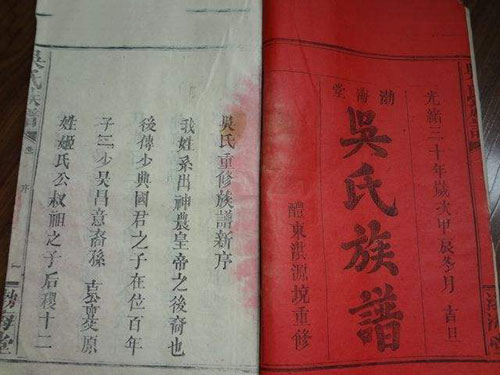 光緒三十年歲次甲辰冬月吉日
渤海堂
吳氏族譜
醴東洪源境重修
吳氏重修族譜新序
我姓系出神農皇帝之後裔也
後傳少典國君之子在位百年
子二少吳昌意裔孫 原
姓姬氏公叔祖之子后稷十二
吳氏族譜 卷 序 一 渤海堂